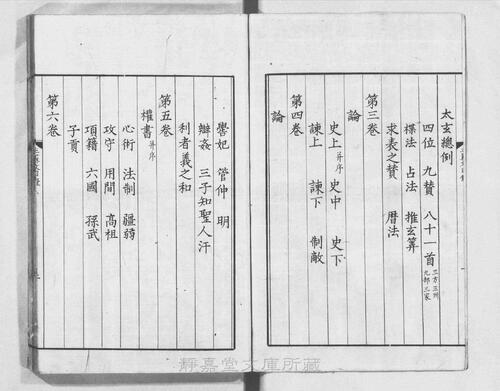 太玄總例
四位 九贊 八十一首 三方三州九部三家
揲法 占法 推玄筭
求表之贊 曆法
第三卷
論
史上并序 史中 史下
諫上 諫下 制敵
第四卷
論
嚳妃 管仲 明
辯姦 三子知聖人汙
利者義之和
第五卷
權書并序
心術 法制 彊弱
攻守 用間 高祖
項籍 六國 孫武
子貢
第六卷
靜嘉堂文庫所藏